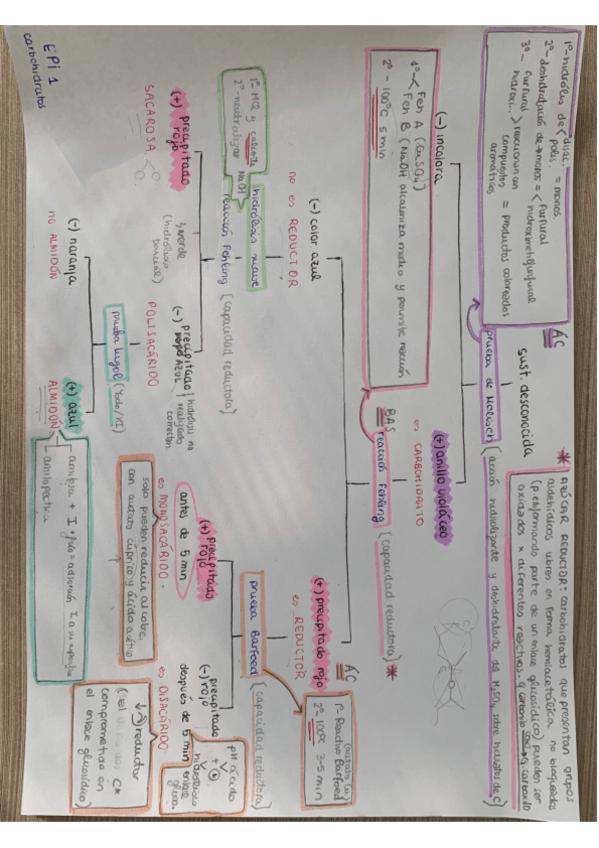 EPI 1
carbohidratos
sust. desconocida
ÁC
prueba de Molisch (acción hidrolizante y deshidratante del H2SO4 sobre hidratos de C)
1º- hidrólisis de < disac. = monos.
polis.
2º- deshidratación de monos = < furfural
hidroximetilfurfural
3º- furfural
hidroxi... > reaccionan = productos coloreados
compuestos
aromáticos
* AZÚCAR REDUCTOR: carbohidratos que presentan grupos
aldehídicos libres en forma hemiacetálica, no bloqueados
(p.ej formando parte de un enlace glucosídico) pueden ser
oxidados x diferentes reactivos.
(-) incolora
(+) anillo violáceo
es CARBOHIDRATO
BAS
reacción Fehling (capacidad reductora) *
1º < Feh A (CuSO4)
Feh B (NaOH alcaliniza medio y permite reacción
2º - 100ºC 5 min
(-) color azul
no es REDUCTOR
(+) precipitado rojo
es REDUCTOR
hidrólisis suave
reacción Fehling (capacidad reductora)
1º- HCl y calienta
2º- neutralizar NaOH
ÁC
prueba Barfoed (capacidad reductora)
1º- Reactivo Barfoed
2º- 100ºC 3-5 min
(+) precipitado
rojo
SACAROSA
verde
(hidrólisis
parcial)
(-) precipitado
AZUL
hidrólisis no
realizada
correctam.
POLISACÁRIDO
(+) precipitado
rojo
antes de 5 min
es MONOSACÁRIDO
solo pueden reducir al cobre
con acetato cúprico y ácido acético
(-) precipitado
rojo
después de 5 min
es DISACÁRIDO
pH ácido
+
hidrolizado
enlace
gluco.
reductor
C*
comprometido en
el enlace glucosídico)
prueba lugol (Yodo/KI)
(-) naranja
no ALMIDÓN
(+) azul
ALMIDÓN
amilosa + I + frío = adsorción I a su superficie
amilopectina